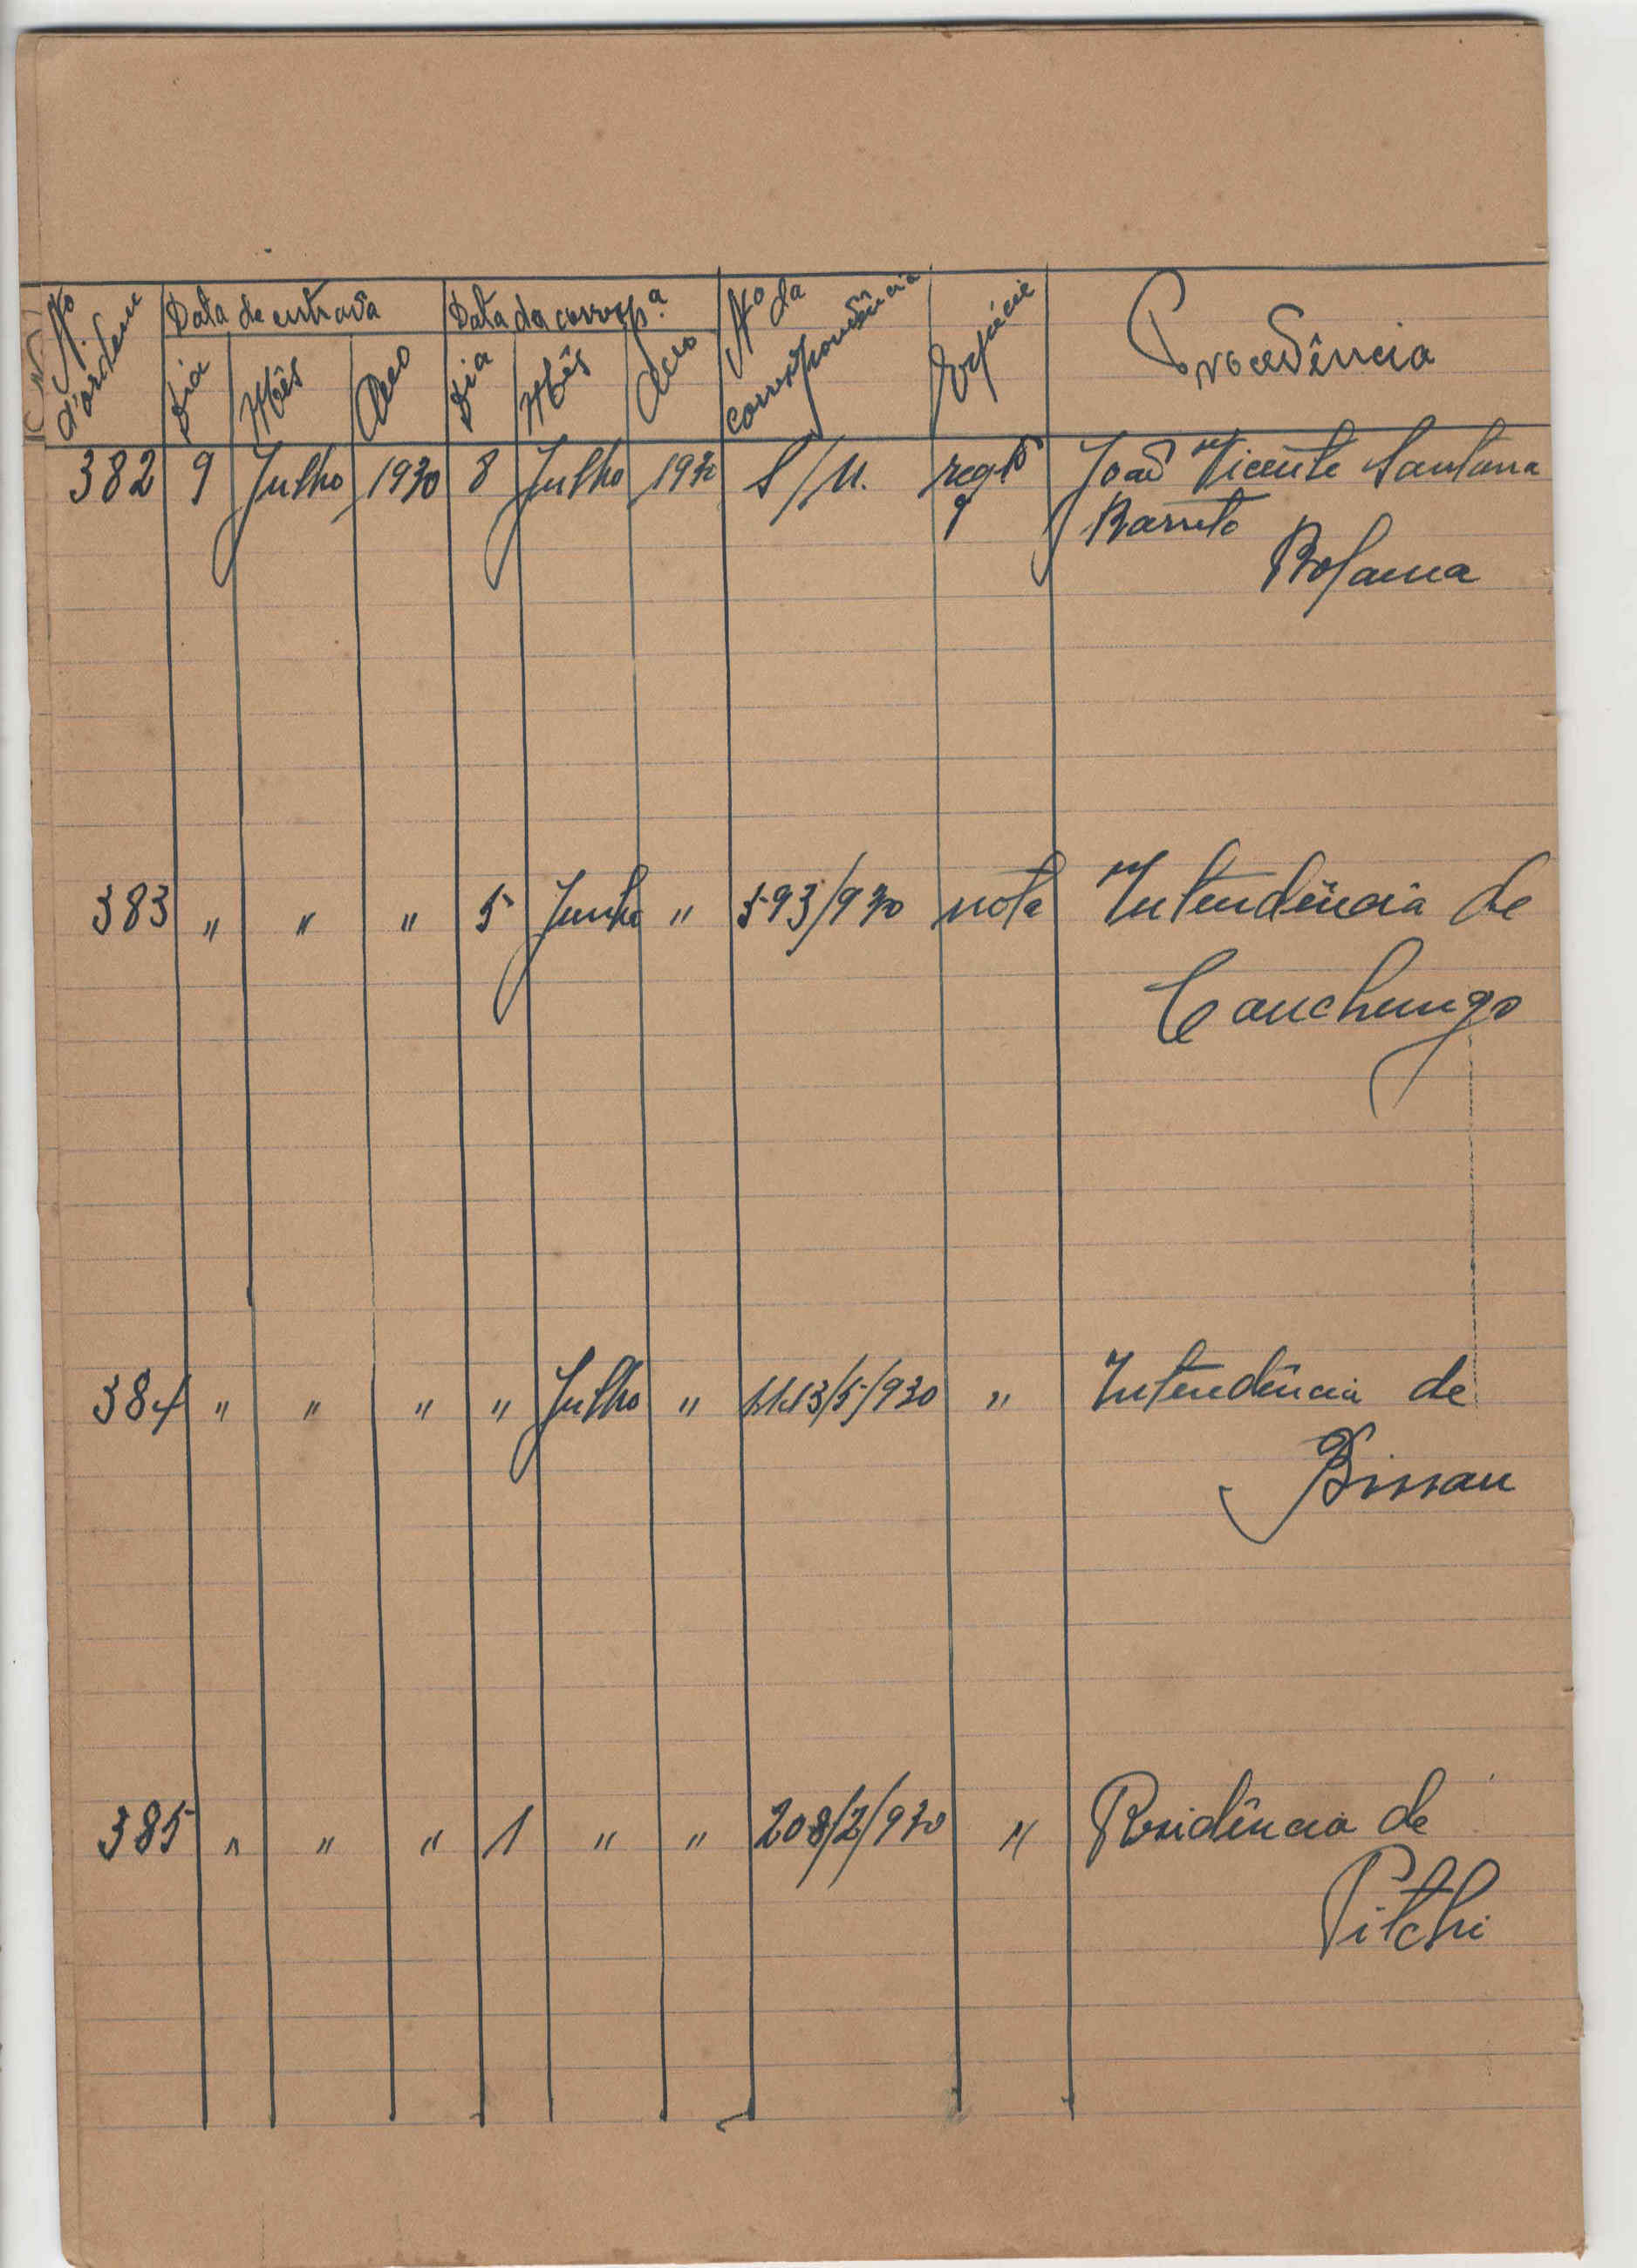 Nº d'ordem | Data de entrada | Data da corresp.ª | Nº da correspondência | Espécie | Procedência
Dia | Mês | Ano | Dia | Mês | Ano
382 | 9 | Julho | 1930 | 8 | Julho | 1930 | S/N. | regtº | João Vicente Santana
Barreto
Bolama
383 | " | " | " | 5 | Junho | " | 593/930 | nota | Intendência de
Canchungo
384 | " | " | " | " | Julho | " | /5/930 | " | Intendência de
Bissau
385 | " | " | " | 1 | " | " | 208/2/930 | " | Residência de
Pitchi